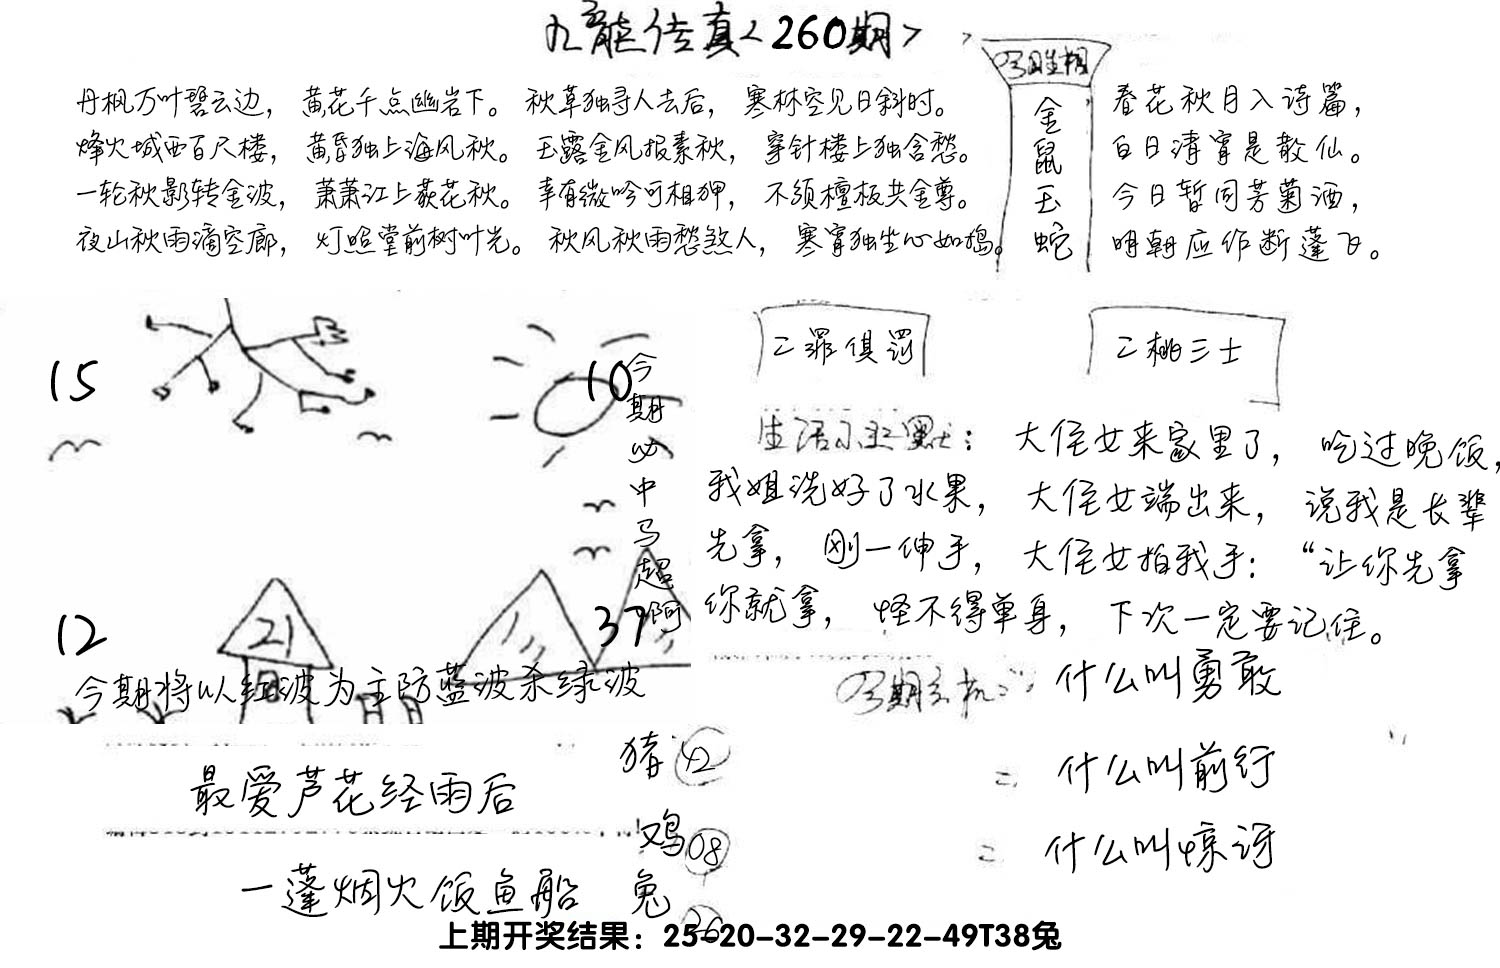 九龙传真<260期>
丹枫万叶碧云边，黄花千点幽岩下。秋草独寻人去后，寒林空见日斜时。
烽火城西百尺楼，黄昏独上海风秋。玉露金风报素秋，穿针楼上独含愁。
一轮秋影转金波，萧萧江上荻花秋。幸有微吟可相狎，不须檀板共金尊。
夜山秋雨滴空廊，灯照堂前树叶光。秋风秋雨愁煞人，寒宵独坐心如捣。
今期生相
金
鼠
玉
蛇
春花秋月入诗篇，
白日清宵是散仙。
今日暂同芳菊酒，
明朝应作断蓬飞。
15
10
今期必中马超阿
12
21
37
今期将以红波为主防蓝波杀绿波
二罪俱罚
二桃三士
生活小幽默：大侄女来家里了，吃过晚饭，
我姐洗好了水果，大侄女端出来，说我是长辈
先拿，刚一伸手，大侄女拍我手：“让你先拿
你就拿，怪不得单身，下次一定要记住。
今期玄机：什么叫勇敢
什么叫前行
什么叫惊讶
最爱芦花经雨后
一蓬烟火饭鱼船
猪 42
鸡 08
兔 26
上期开奖结果：25-20-32-29-22-49T38兔